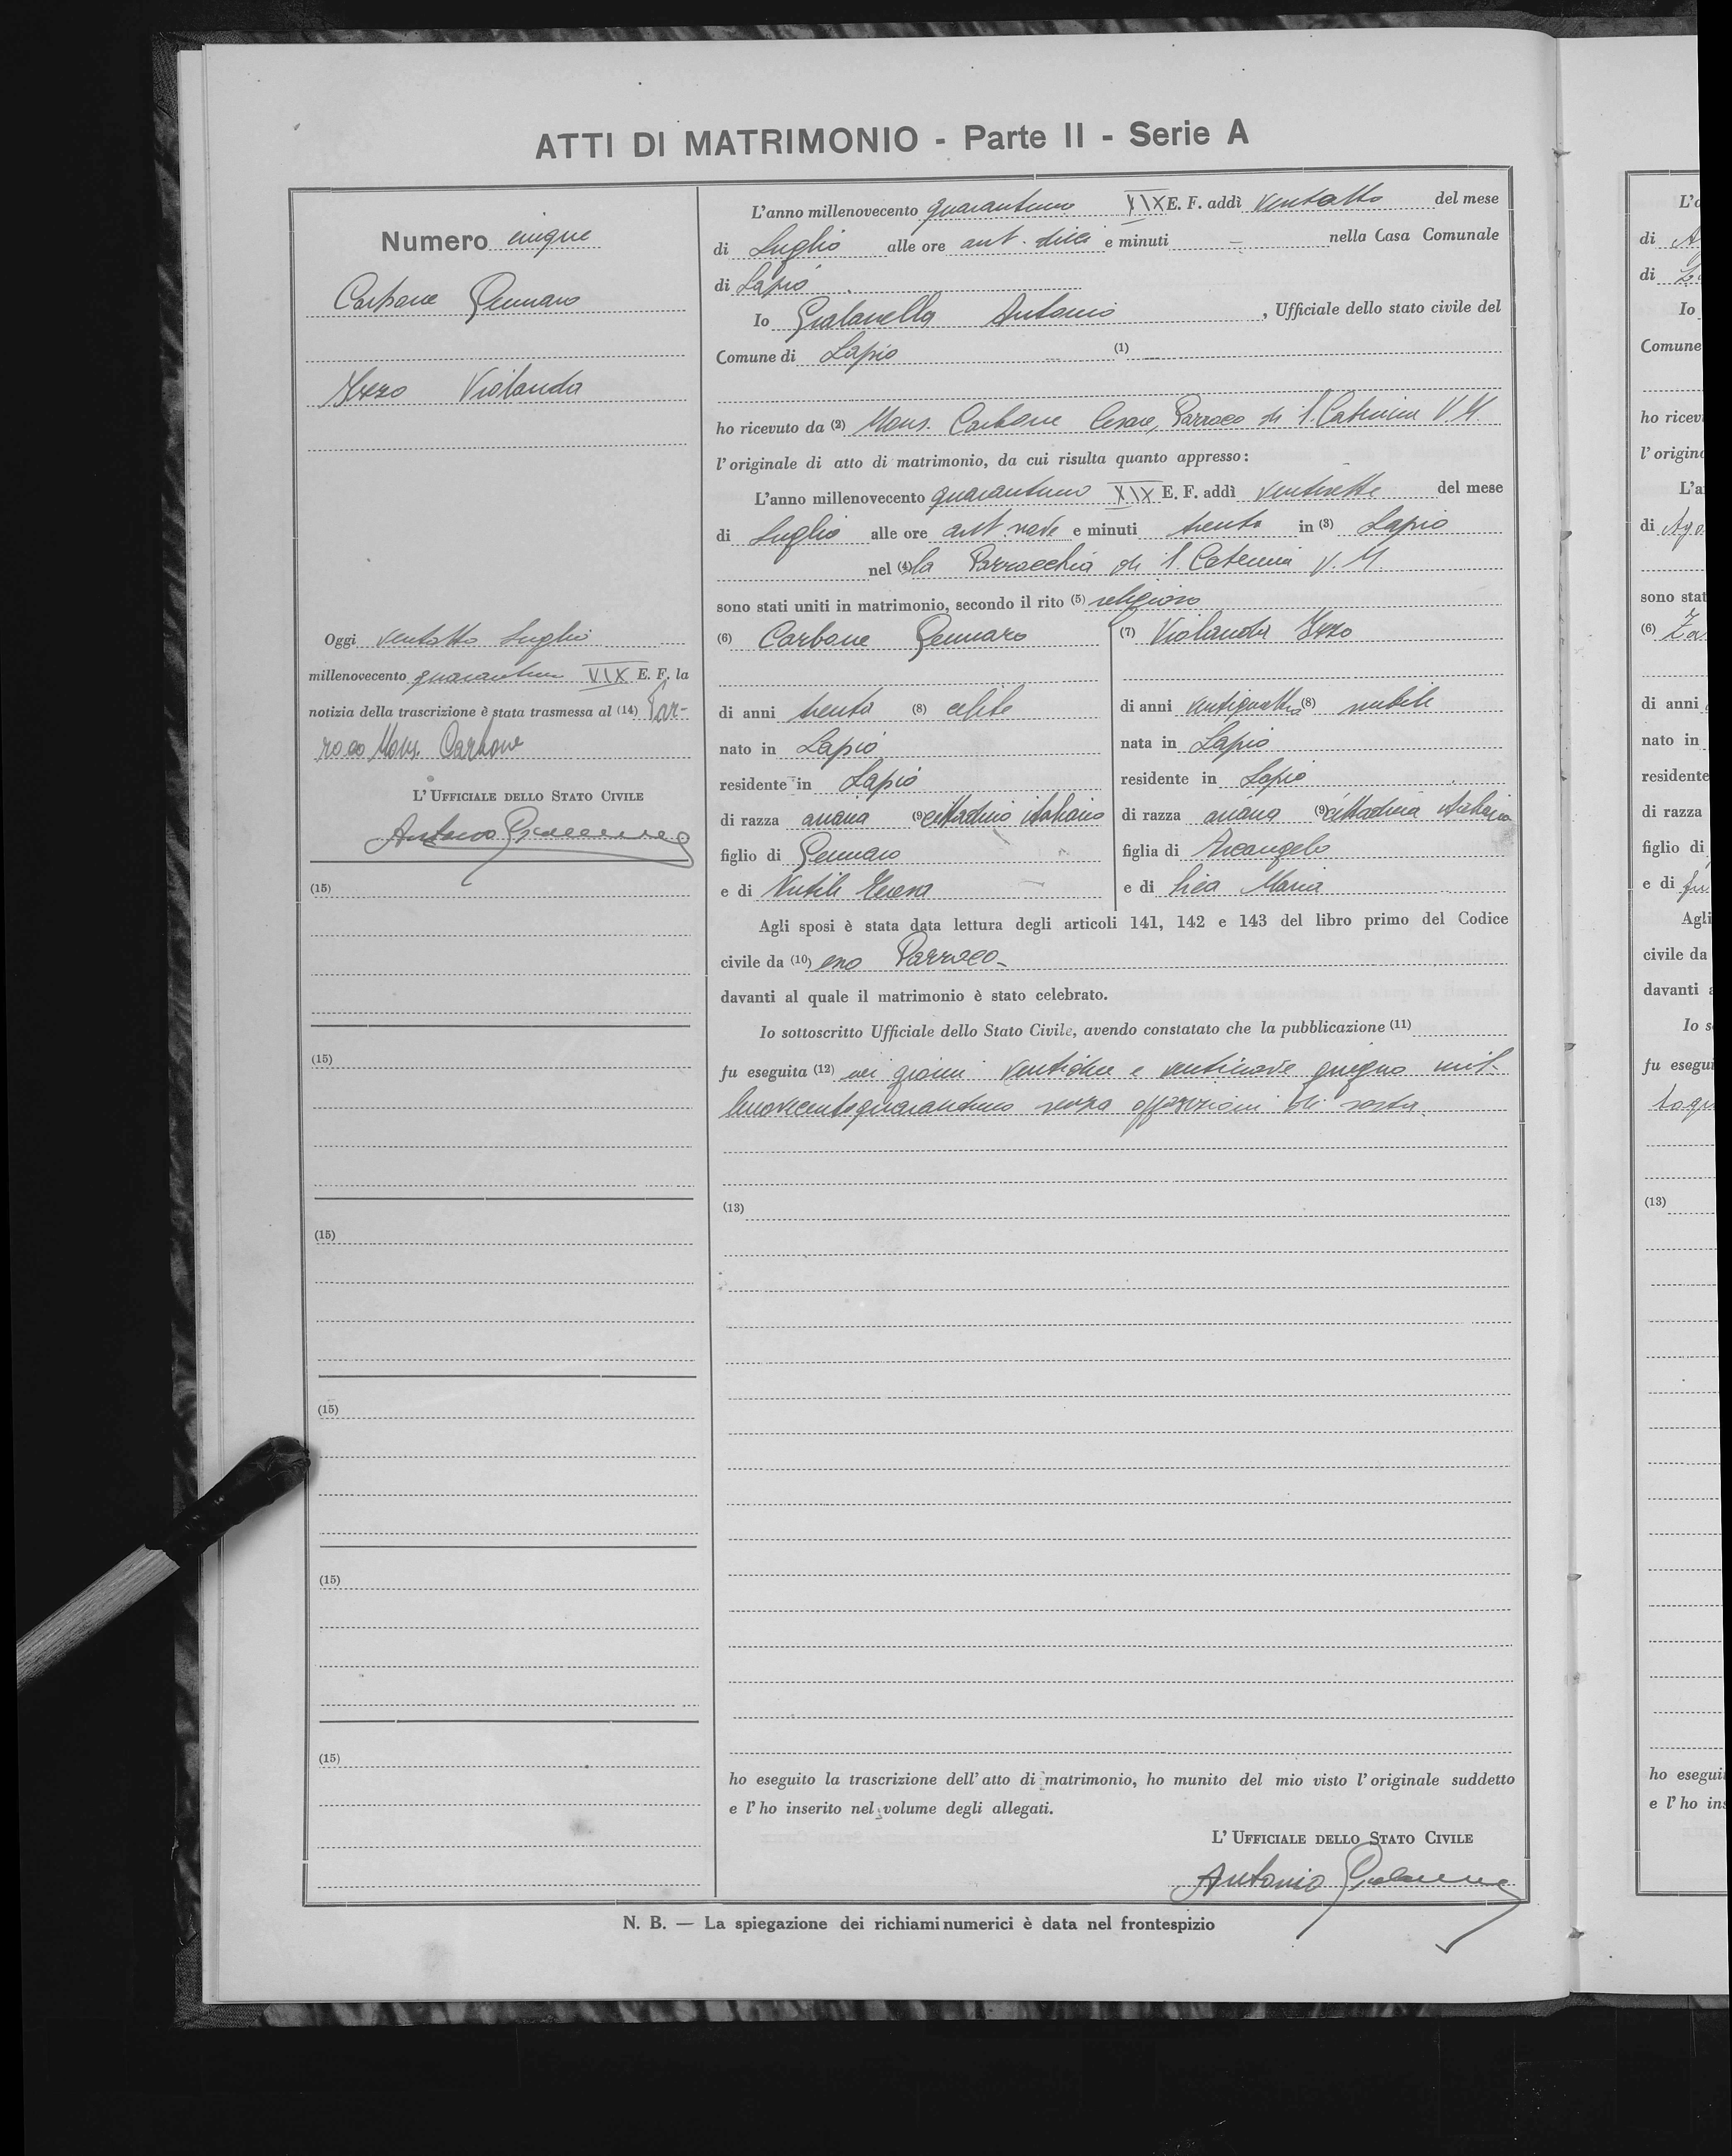 ATTI DI MATRIMONIO - Parte II - Serie A
Numero cinque
Carbone Gennaro
Izzo Violanda
Oggi ventotto Luglio
millenovecento quarantuno XIX E. F. la
notizia della trascrizione è stata trasmessa al (14) Par-
roco Mons. Carbone
L' UFFICIALE DELLO STATO CIVILE
Antonio
(15)
(15)
(15)
(15)
(15)
(15)
L'anno millenovecento quarantuno XIX E. F. addì ventotto del mese
di Luglio alle ore ant. dieci e minuti – nella Casa Comunale
di Lapio
Io Gialanella Antonio , Ufficiale dello stato civile del
Comune di Lapio (1)
ho ricevuto da (2) Mons. Carbone Cesare, Parroco di S. Caterina V. M.
l'originale di atto di matrimonio, da cui risulta quanto appresso:
L'anno millenovecento quarantuno XIX E. F. addì ventisette del mese
di Luglio alle ore ant. nove e minuti trenta in (3) Lapio
nel (4) la Parrocchia di S. Caterina V. M.
sono stati uniti in matrimonio, secondo il rito (5) religioso
(6) Carbone Gennaro
di anni trenta (8) celibe
nato in Lapio
residente in Lapio
di razza ariana (9) cittadino italiano
figlio di Gennaro
e di
(7) Violanda Izzo
di anni ventiquattro (8) nubile
nata in Lapio
residente in Lapio
di razza ariana (9) cittadina italiana
figlia di Arcangelo
e di Maria
Agli sposi è stata data lettura degli articoli 141, 142 e 143 del libro primo del Codice
civile da (10) esso Parroco
davanti al quale il matrimonio è stato celebrato.
Io sottoscritto Ufficiale dello Stato Civile, avendo constatato che la pubblicazione (11)
fu eseguita (12) nei giorni ventidue e ventinove giugno mil-
lenovecentoquarantuno senza opposizioni di sorta.
(13)
ho eseguito la trascrizione dell'atto di matrimonio, ho munito del mio visto l'originale suddetto
e l'ho inserito nel volume degli allegati.
L' UFFICIALE DELLO STATO CIVILE
Antonio
N. B. — La spiegazione dei richiami numerici è data nel frontespizio
L'a
di
di
Io
Comune
ho ricev
l'origin
L'a
di Ago
sono stat
(6) Za
di anni
nato in
residente
di razza
figlio di
e di fu
Agli
civile da
davanti a
Io s
fu esegui
(13)
ho esegui
e l'ho ins